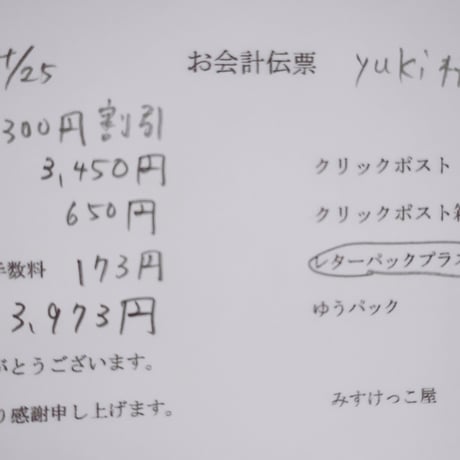 /25 お会計伝票 yuki
300円 割引
3,450円 クリックポスト
650円 クリックポスト箱
手数料 173円 レターパックプラス
3,973円 ゆうパック
がとうございます。
り感謝申し上げます。 みすけっこ屋